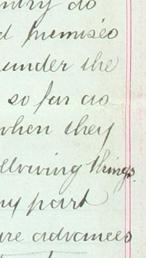 ntry do
d premises
under the
so far as
when they
ollowing things.
ny part
ure advances